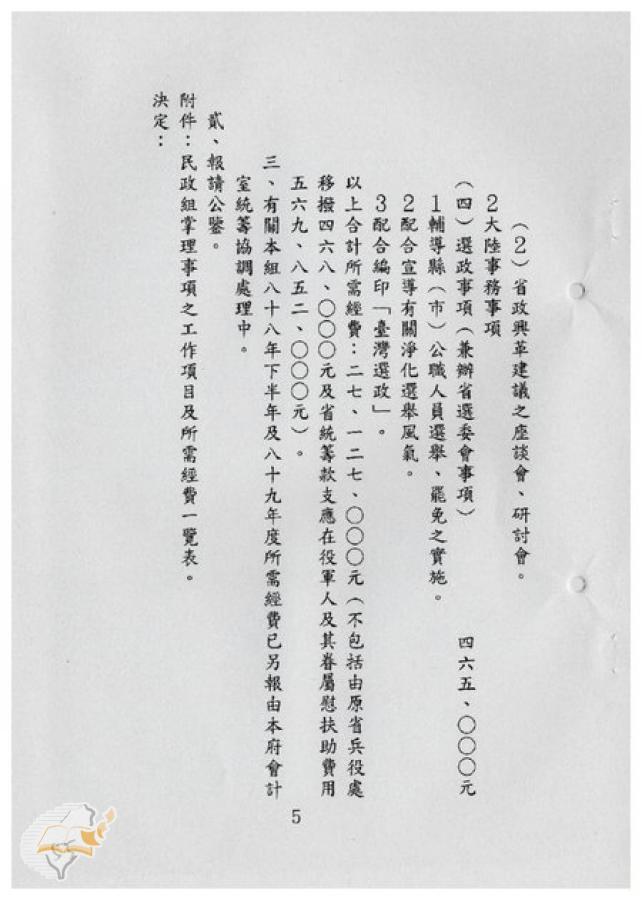 （2）省政興革建議之座談會、研討會。
2大陸事務事項
（四）選政事項（兼辦省選委會事項） 四六五、〇〇〇元
1輔導縣（市）公職人員選舉、罷免之實施。
2配合宣導有關淨化選舉風氣。
3配合編印「臺灣選政」。
以上合計所需經費：二七、一二七、〇〇〇元（不包括由原省兵役處
移撥四六八、〇〇〇元及省統籌款支應在役軍人及其眷屬慰扶助費用
五六九、八五二、〇〇〇元）。
三、有關本組八十八年下半年及八十九年度所需經費已另報由本府會計
室統籌協調處理中。
貳、報請公鑒。
附件：民政組掌理事項之工作項目及所需經費一覽表。
決定：
5